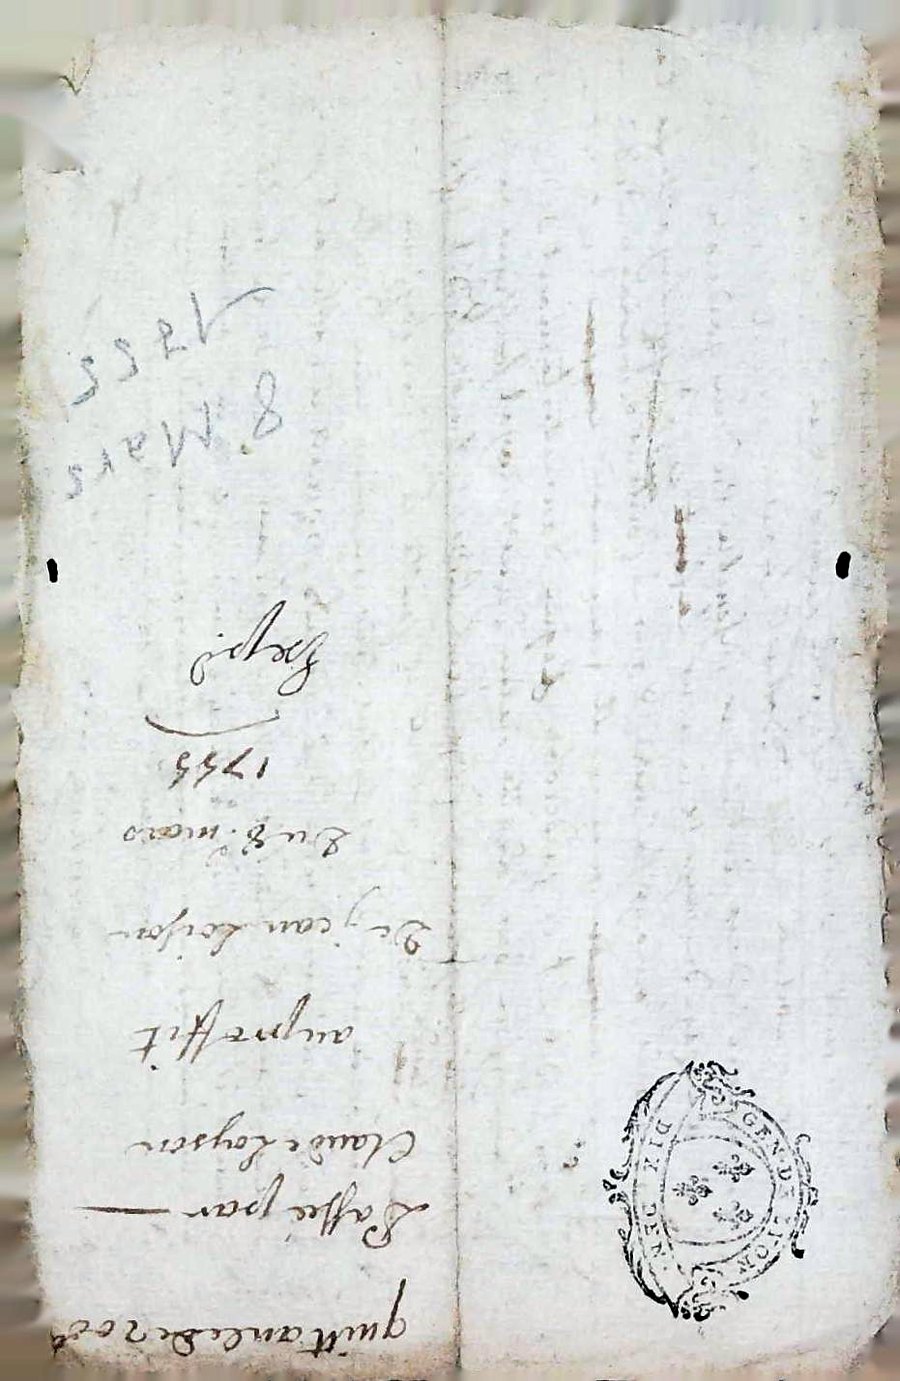 quittance de 200#
Passée par
Claude Loyson
au proffit
De jean Loison
Du 8e. mars
1755
Exp.d
8 Mars
1755
GEN. DE LYON
DIX DEN.